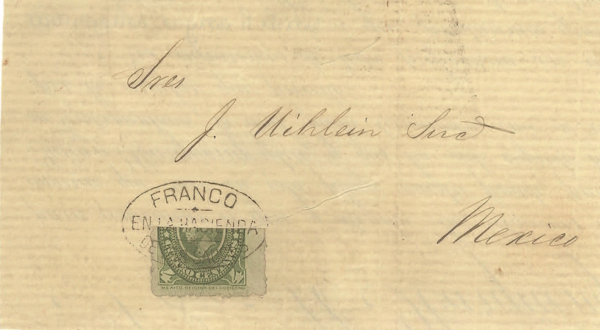 Sres
J. Uihlein Sucs
Mexico
FRANCO
EN LA HACIENDA